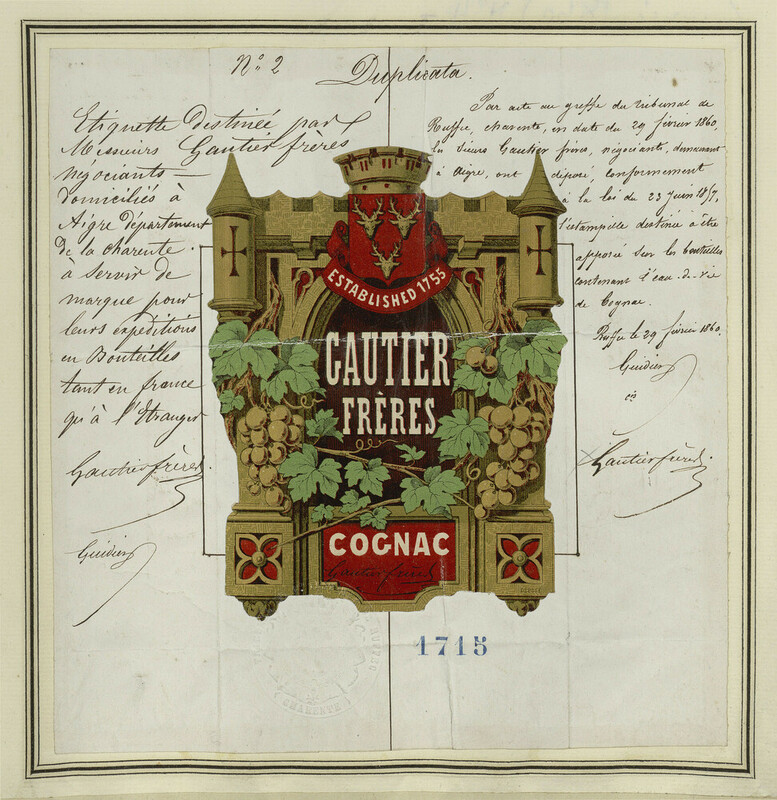 N° 2
Duplicata.
Etiquette destinée par
Messieurs Gautier frères
négociants
domiciliés à
Aigre département
de la charente.
à servir de
marque pour
leurs expéditions
en Bouteilles
tant en france
qu'à l'Etranger
Gautier frères
Guidier
Par acte au greffe du tribunal de
Ruffec, charente, en date du 29 février 1860,
les sieurs Gautier frères, négociants, demeurant
à Aigre, ont déposé, conformément
à la loi du 23 Juin 1857,
l'estampille destinée à être
apposée sur les bouteilles
contenant l'eau-de-vie
de Cognac.
Ruffec le 29 février 1860.
Guidier
Gautier frères.
ESTABLISHED 1755
GAUTIER
FRÈRES
COGNAC
Gautier frères
1715
CHARENTE